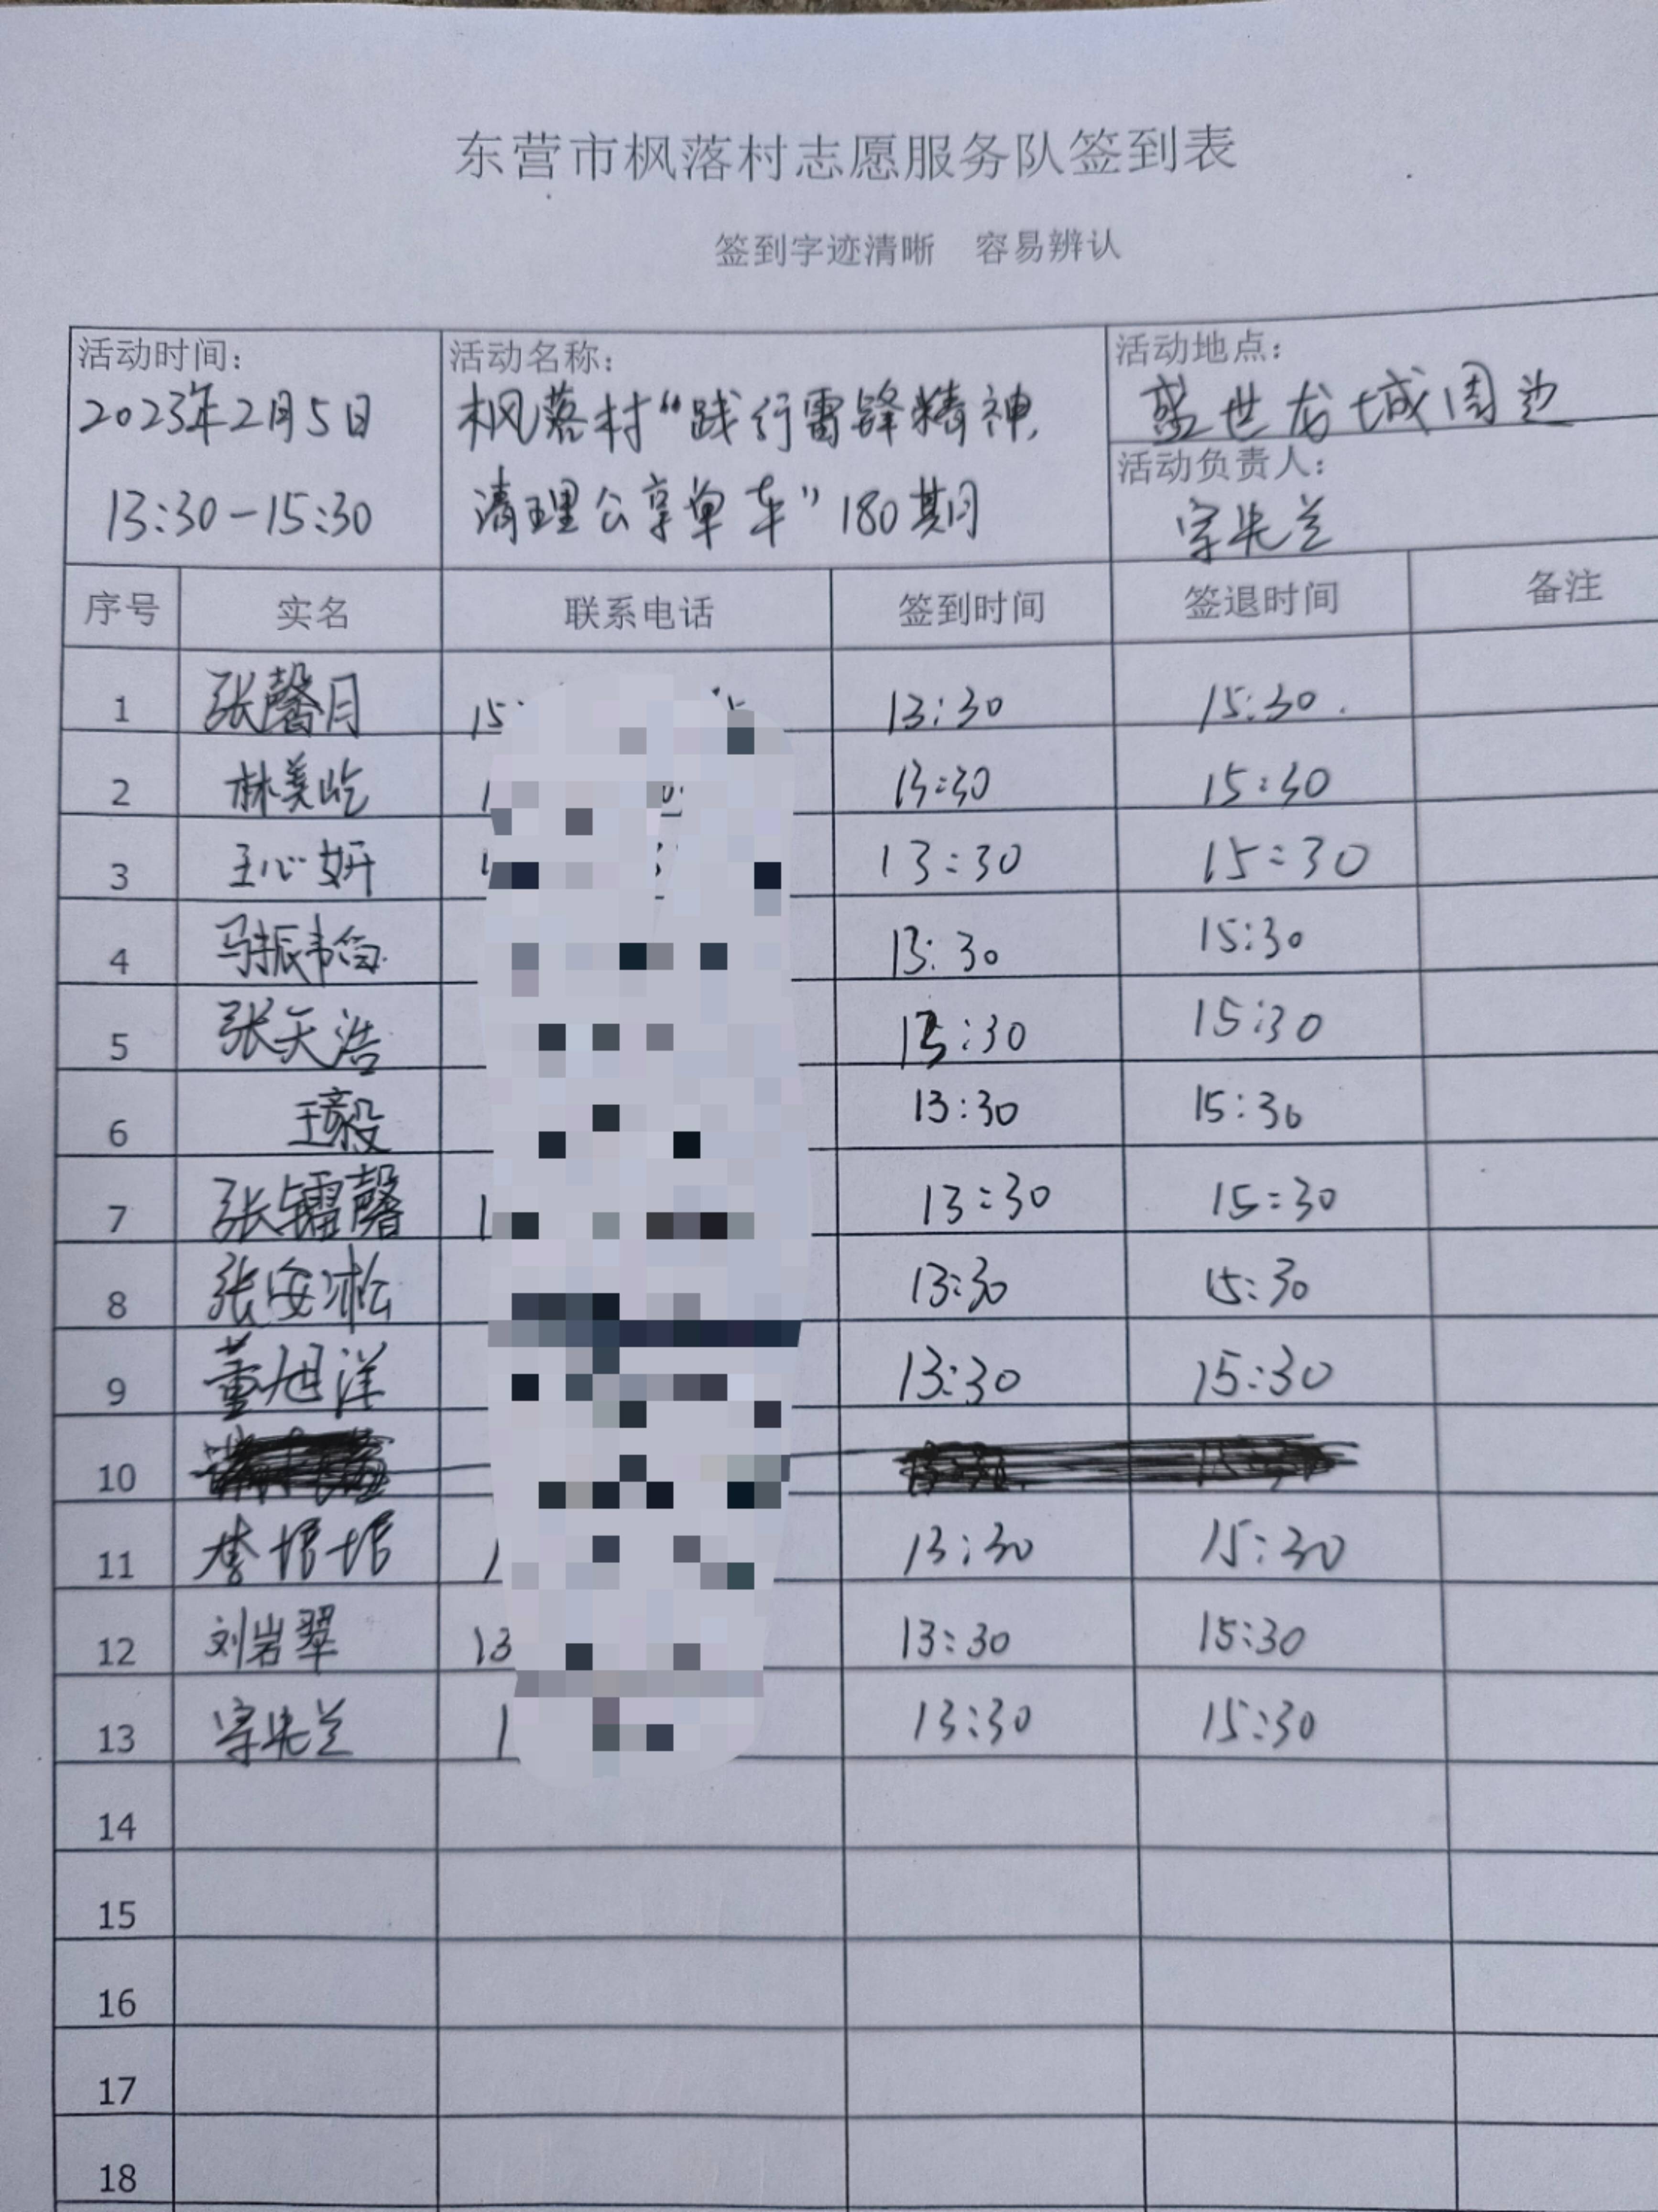 东营市枫落村志愿服务队签到表
签到字迹清晰 容易辨认
活动时间：
2023年2月5日
13:30-15:30
活动名称：
枫落村“践行雷锋精神，
清理公享单车”180期
活动地点：
盛世龙城周边
活动负责人：
序号 实名 联系电话 签到时间 签退时间 备注
1 张馨月 15 13:30 15:30.
2 林美屹 1 13:30 15:30
3 王心妍 1 13:30 15:30
4 马振 13:30 15:30
5 张天浩 13:30 15:30
6 王毅 13:30 15:30
7 张镭馨 1 13:30 15:30
8 张安淞 13:30 15:30
9 董旭洋 13:30 15:30
10
11 李 1 13:30 15:30
12 刘岩翠 13 13:30 15:30
13 1 13:30 15:30
14
15
16
17
18